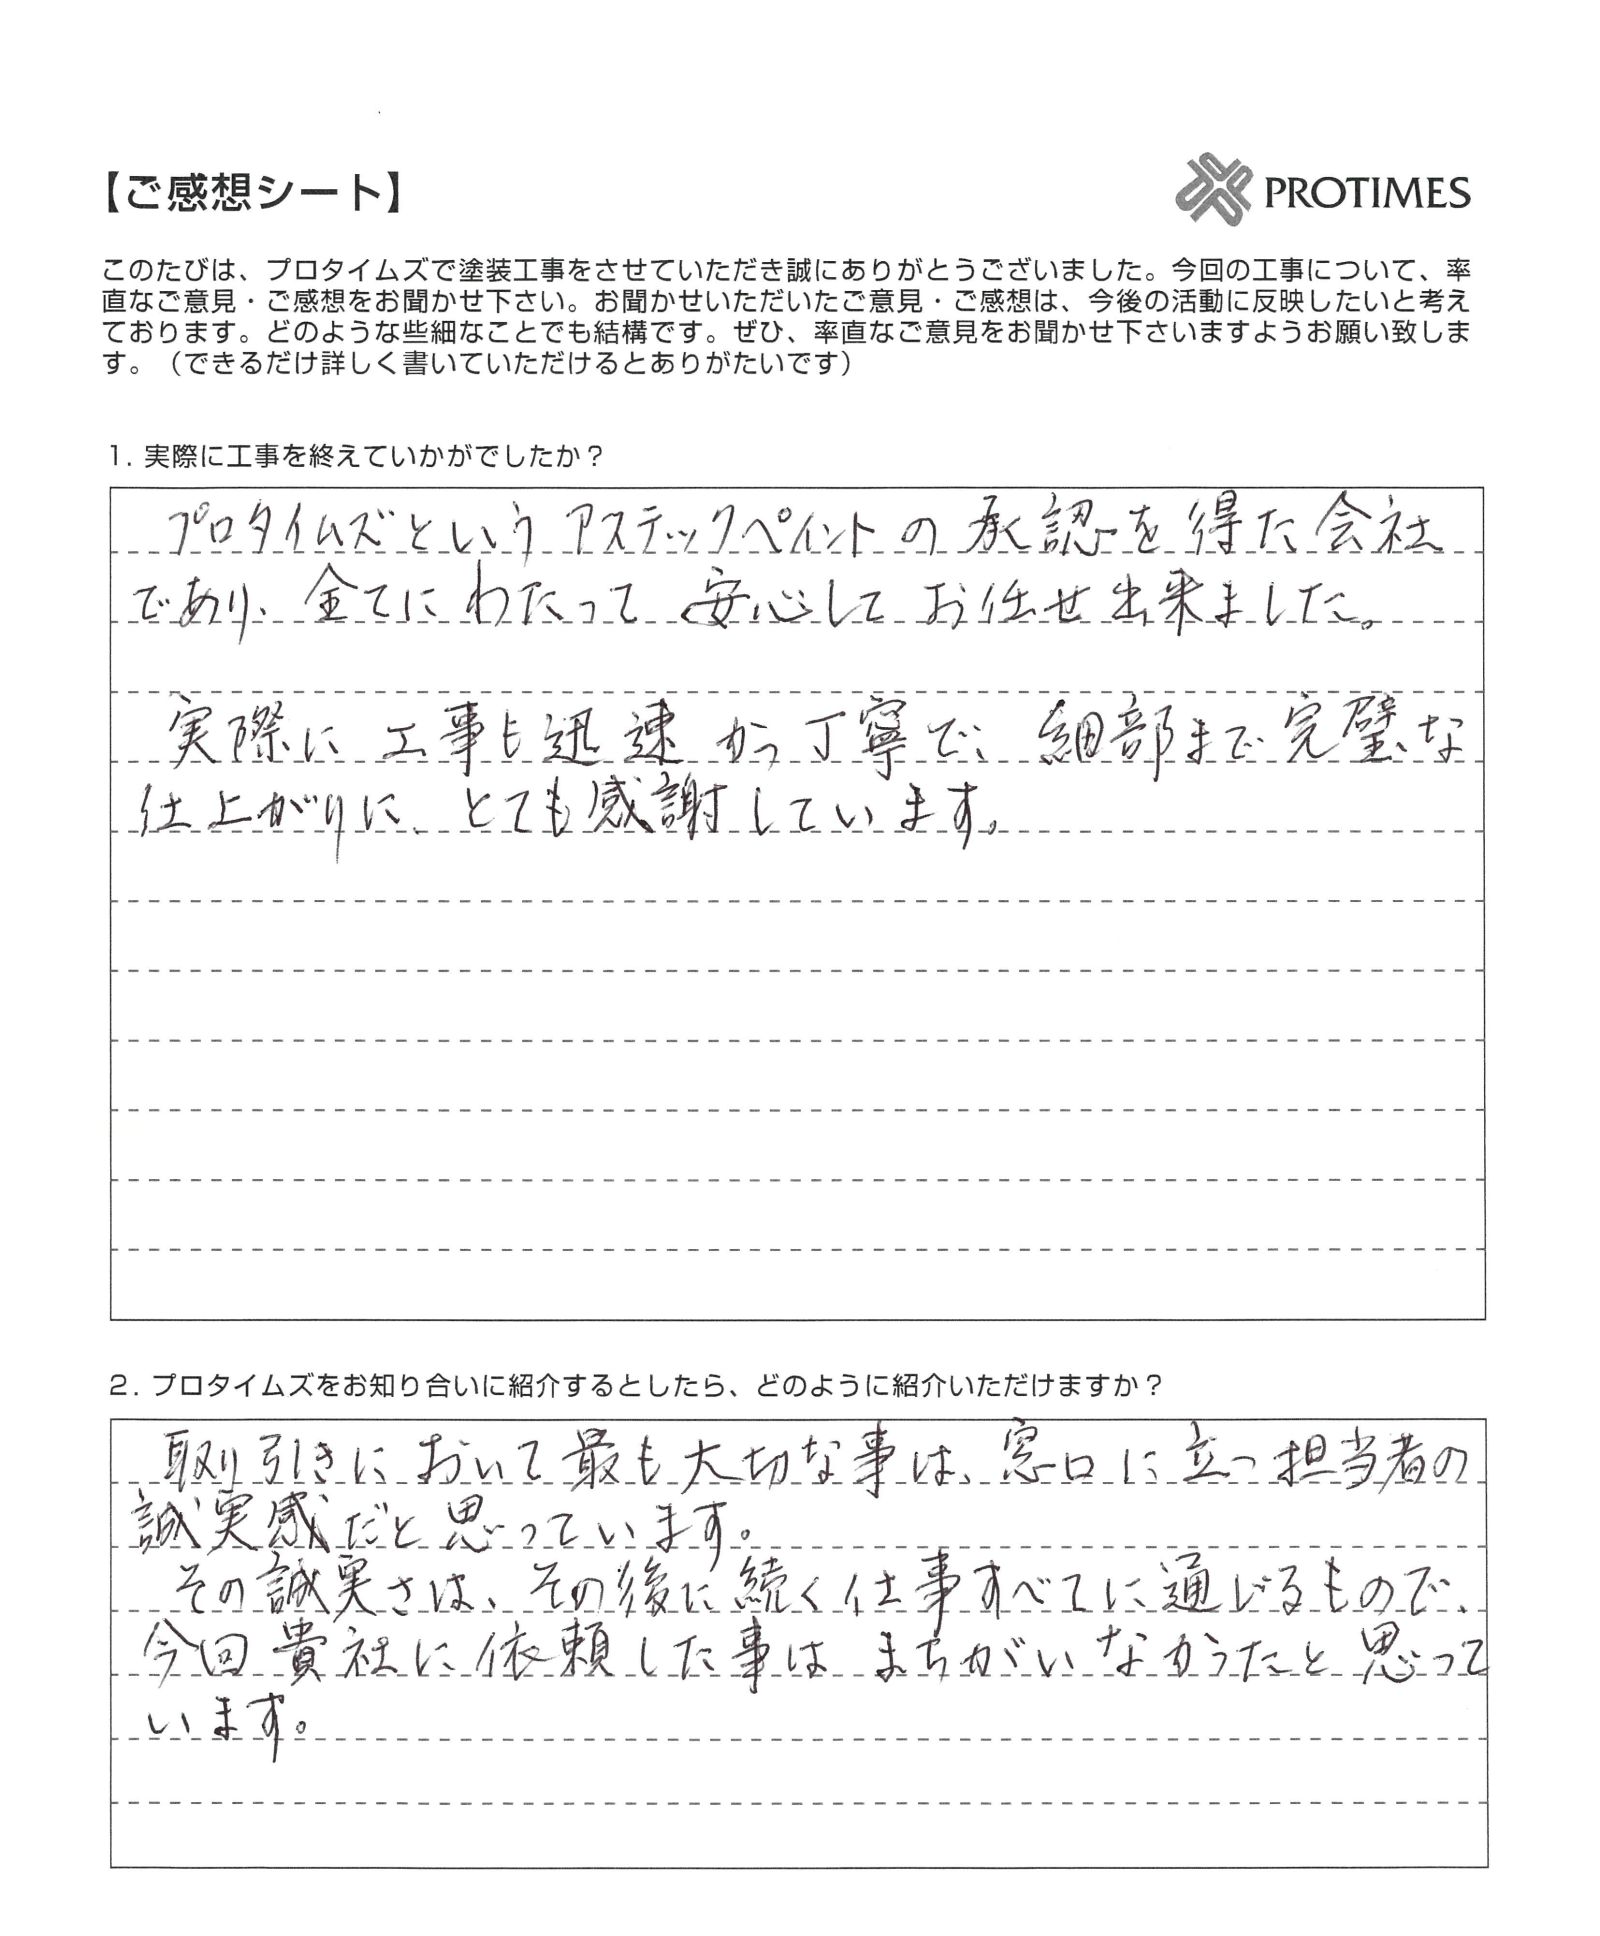 【ご感想シート】
PROTIMES
このたびは、プロタイムズで塗装工事をさせていただき誠にありがとうございました。今回の工事について、率
直なご意見・ご感想をお聞かせ下さい。お聞かせいただいたご意見・ご感想は、今後の活動に反映したいと考え
ております。どのような些細なことでも結構です。ぜひ、率直なご意見をお聞かせ下さいますようお願い致しま
す。（できるだけ詳しく書いていただけるとありがたいです）
1. 実際に工事を終えていかがでしたか？
プロタイムズという アステックペイントの 承認を得た会社
であり、全てにわたって 安心して お任せ出来ました。
実際に 工事も迅速 かつ丁寧で、細部まで完璧な
仕上がりに、とても感謝しています。
2. プロタイムズをお知り合いに紹介するとしたら、どのように紹介いただけますか？
取り引きにおいて最も大切な事は、窓口に立つ担当者の
誠実感だと思っています。
その誠実さは、その後に続く仕事すべてに通じるもので、
今回貴社に依頼した事は まちがいなかったと思って
います。